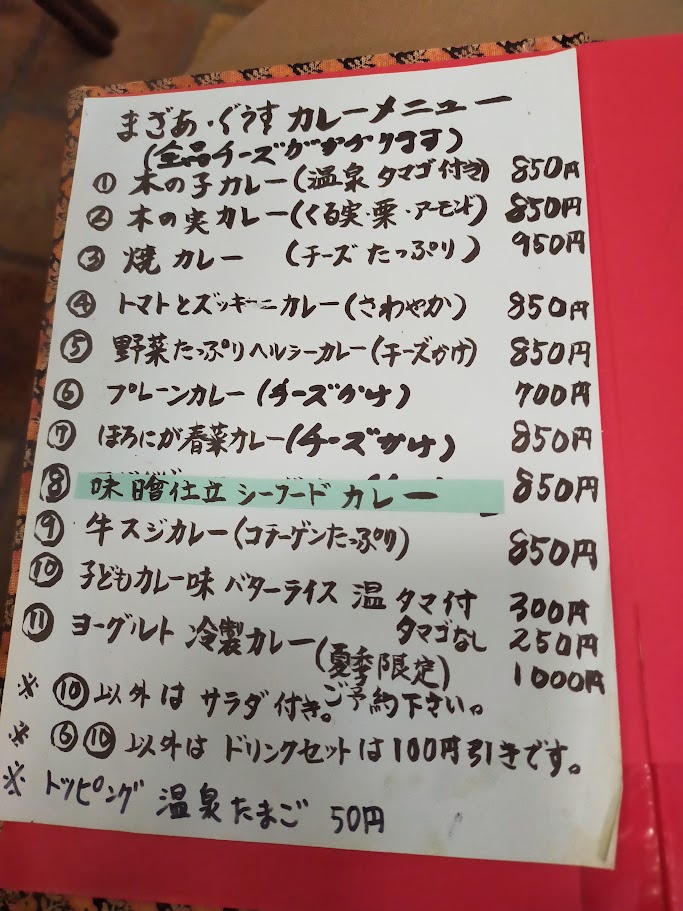 まざあ・ぐうす カレーメニュー
(全品チーズがかかります)
① 木の子カレー(温泉タマゴ付き) 850円
② 木の実カレー(くる実・栗・アーモンド) 850円
③ 焼カレー (チーズたっぷり) 950円
④ トマトとズッキーニカレー(さわやか) 850円
⑤ 野菜たっぷりヘルシーカレー(チーズかけ) 850円
⑥ プレーンカレー(チーズかけ) 700円
⑦ ほろにが春菜カレー(チーズかけ) 850円
⑧ 味噌仕立シーフードカレー 850円
⑨ 牛スジカレー(コラーゲンたっぷり) 850円
⑩ 子どもカレー味 バターライス 温タマ付 300円
タマゴなし 250円
⑪ ヨーグルト冷製カレー(夏季限定) 1000円
ご予約下さい。
※ ⑩以外はサラダ付き。
※ ⑥⑩以外はドリンクセットは100円引きです。
※ トッピング 温泉たまご 50円